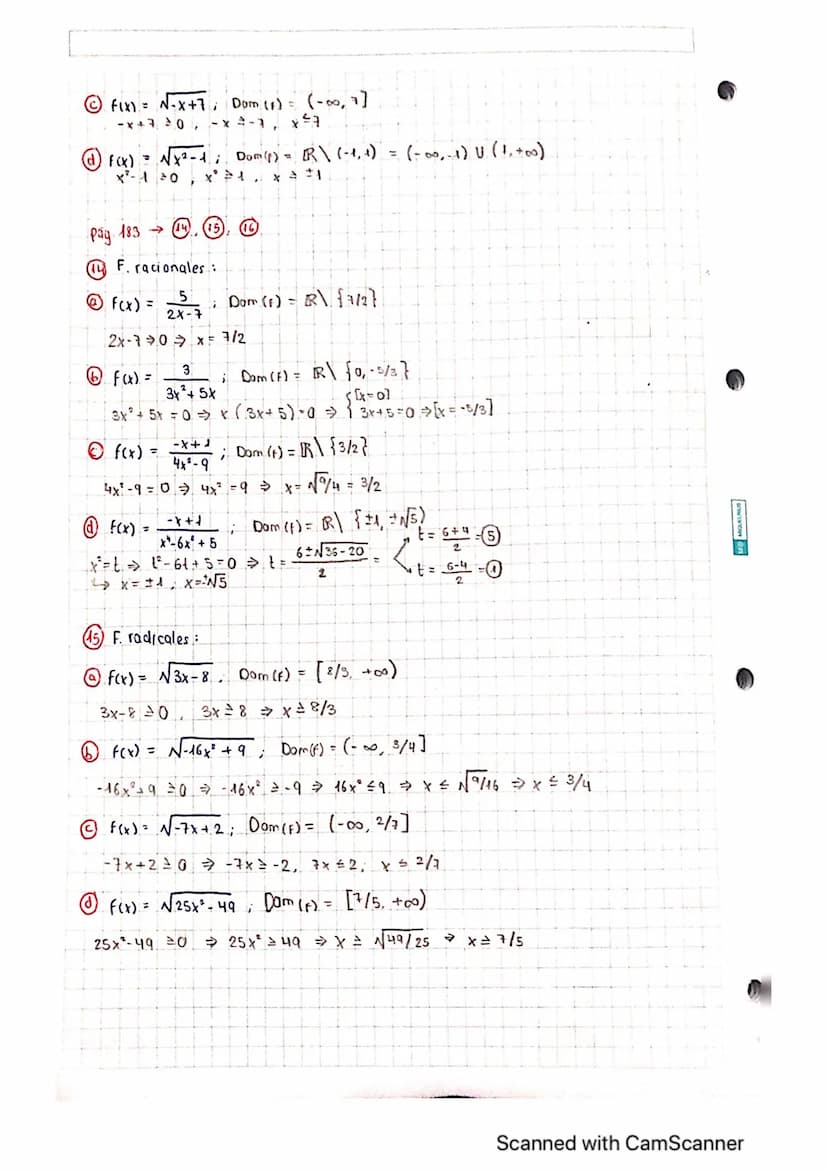 ⓒ f(x) = √-x+7 ; Dom (f) = (-∞, 7]
-x+7 ≥ 0 , -x ≥ -7 , x ≤ 7
ⓓ f(x) = √x²-1 ; Dom(f) = ℝ \ (-1,1) = (-∞,-1) ∪ (1,+∞)
x²-1 ≥0 , x² ≥1 , x ≥ ±1
Pág 183 → ⑭, ⑮, ⑯
⑭ F. racionales :
ⓐ f(x) = 5/(2x-7) ; Dom (f) = ℝ \ {7/2}
2x-7=0 ⇒ x = 7/2
ⓑ f(x) = 3/(3x²+5x) ; Dom (f) = ℝ \ {0, -5/3}
3x²+5x = 0 ⇒ x (3x+5)=0 ⇒ { [x=0] 3x+5=0 ⇒ [x = -5/3]
ⓒ f(x) = (-x+1)/(4x²-9) ; Dom (f) = ℝ \ {3/2}
4x²-9 = 0 ⇒ 4x² = 9 ⇒ x = √9/4 = 3/2
ⓓ f(x) = (-x+1)/(x⁴-6x²+5) ; Dom (f) = ℝ \ {±1, ±√5)
x²=t ⇒ t²-6t+5=0 ⇒ t = (6±√36-20)/2 = < t = (6+4)/2 = ⑤ t = (6-4)/2 = ①
↳ x = ±1 ; x=±√5
⑮ F. radicales :
ⓐ f(x) = √3x-8 . Dom (f) = [8/3, +∞)
3x-8 ≥0 , 3x ≥ 8 ⇒ x ≥ 8/3
ⓑ f(x) = √-16x²+9 ; Dom(f) = (-∞, 3/4]
-16x²+9 ≥0 ⇒ -16x² ≥ -9 ⇒ 16x² ≤9 ⇒ x ≤ √9/16 ⇒ x ≤ 3/4
ⓒ f(x) = √-7x+2 ; Dom(f) = (-∞, 2/7]
-7x+2 ≥ 0 ⇒ -7x ≥ -2, 7x ≤ 2; x ≤ 2/7
ⓓ f(x) = √25x²-49 ; Dom (f) = [7/5, +∞)
25x²-49 ≥0 ⇒ 25x² ≥ 49 ⇒ x ≥ √49/25 ⇒ x ≥ 7/5
MIQUELRIUS
Scanned with CamScanner